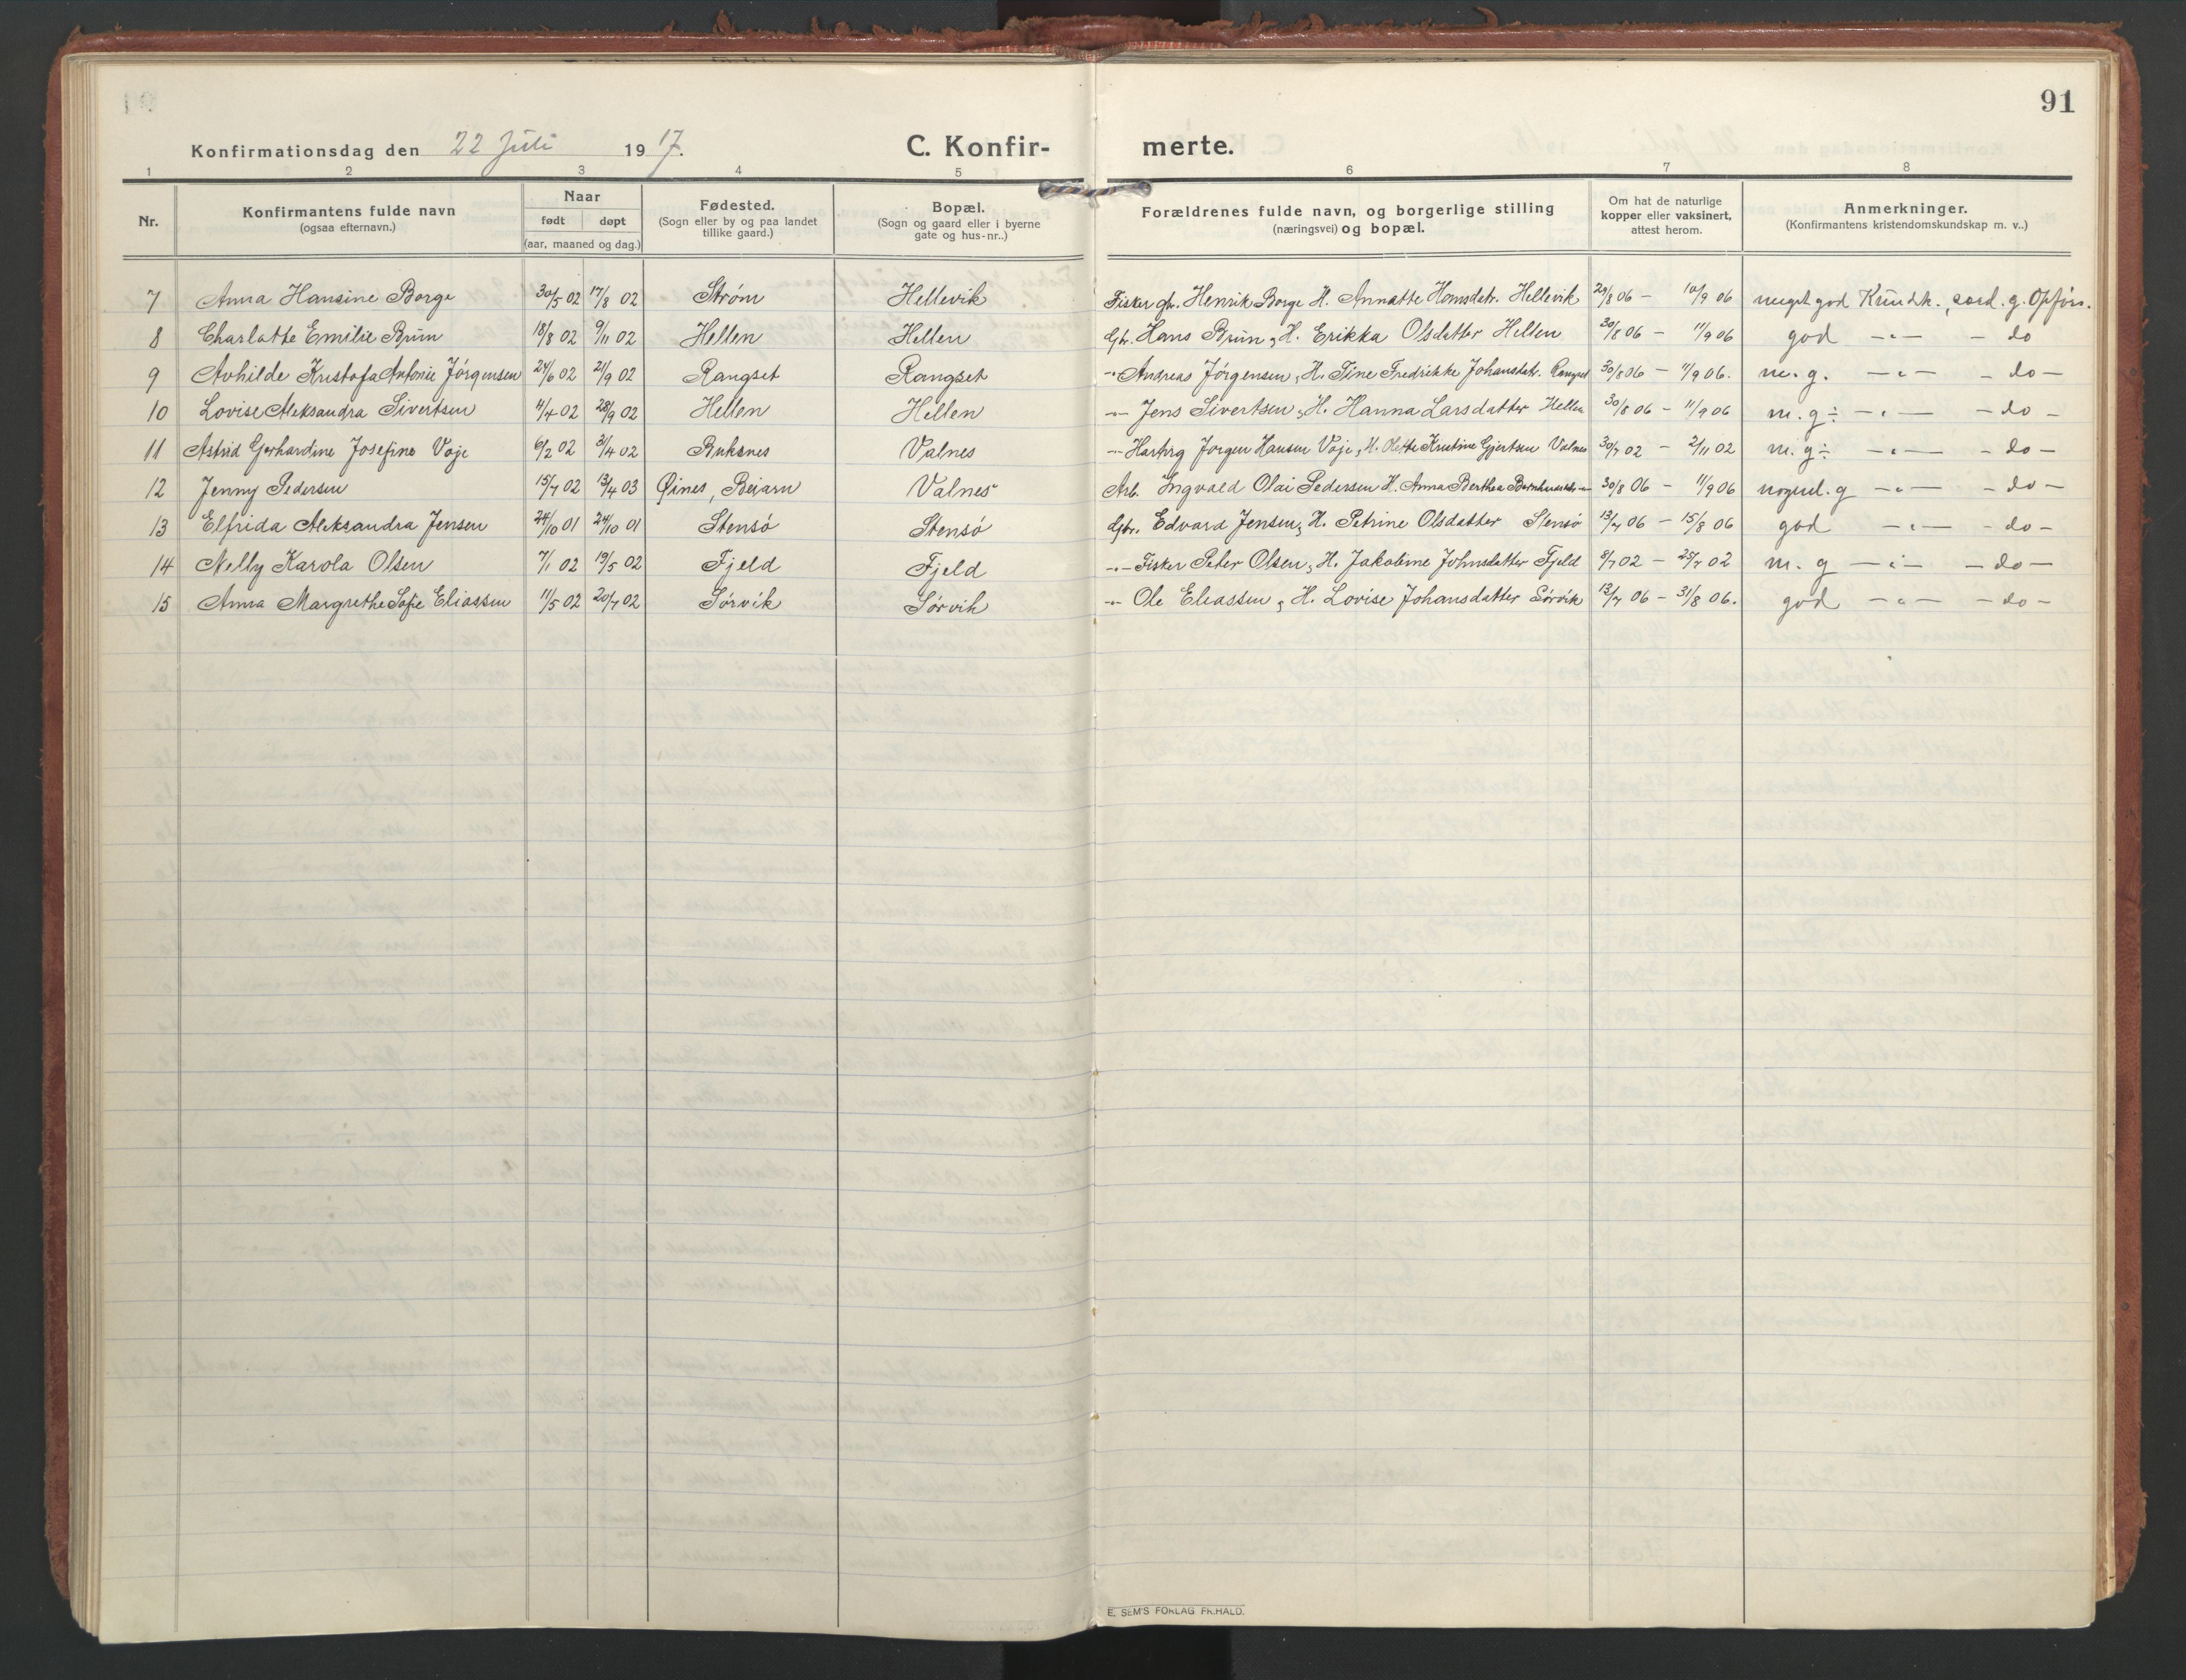 91
Konfirmationsdag den 22 Juli 1917.
C. Konfir- merte.
1 2 3 4 5 6 7 8
Nr. Konfirmantens fulde navn (ogsaa efternavn.) Naar født døpt (aar, maaned og dag.) Fødested. (Sogn eller by og paa landet tillike gaard.) Bopæl. (Sogn og gaard eller i byerne gate og hus-nr..) Forældrenes fulde navn, og borgerlige stilling (næringsvei) og bopæl. Om hat de naturlige kopper eller vaksinert, attest herom. Anmerkninger. (Konfirmantens kristendomskundskap m. v..)
7 Anna Hansine Borge 30/5 02 17/8 02 Strøm Hellevik Fisker gbr. Henrik Borge H. Annatte Homsdatr. Hellevik 29/8 06 – 10/9 06 meget god Kundk., sæd. g. Opførs.
8 Charlotte Emilie Brun 18/8 02 9/11 02 Hellen Hellen Gbr. Hans Brun, H. Erikka Olsdatter Hellen 30/8 06 – 11/9 06 god –"– – do
9 Avhilde Kristofa Antonie Jörgensen 24/6 02 21/9 02 Rangset Rangset –"– Andreas Jörgensen, H. Tine Fredrikke Johansdatr. Rangset 30/8 06 – 11/9 06. m. g. –"– – do –
10 Lovise Aleksandra Sivertsen 11/4 02 28/9 02 Hellen Hellen –"– Jens Sivertsen, H. Hanna Larsdatter Hellen 30/8 06 – 11/9 06 m. g ÷ –"– – do –
11 Astrid Gerhardine Josefine Voje 6/2 02 31/4 02 Buksnes Valnes –"– Hartvig Jorgen Hansen Voje, H. Olette Kristine Gjertsen Valnes 30/7 02 – 2/11 02 m. g ÷ –"– – do –
12 Jenny Pedersen 15/7 02 13/4 03 Øines, Beiarn Valnes Arb. Ingvald Olai Pedersen H. Anna Berthea –"– 30/8 06 – 11/9 06 nogenl. g –"– – do –
13 Elfrida Aleksandra Jensen 24/10 01 24/10 01 Stensö Stensö Gbr. Edvard Jensen, H. Petrine Olsdatter Stensö 13/7 06 – 15/8 06 god –"– – do –
14 Nelly Karola Olsen 7/1 02 19/5 02 Fjeld Fjeld –"– Fisker Peter Olsen, H. Jakobine Johnsdatter Fjeld 8/7 02 – 25/7 02 m. g –"– – do –
15 Anna Margrethe Sofie Eliassen 11/5 02 20/7 02 Sörvik Sörvik –"– Ole Eliassen, H. Lovise Johansdatter Sörvik 13/7 06 – 31/8 06. god –"– – do –
E. SEM'S FORLAG FR.HALD.